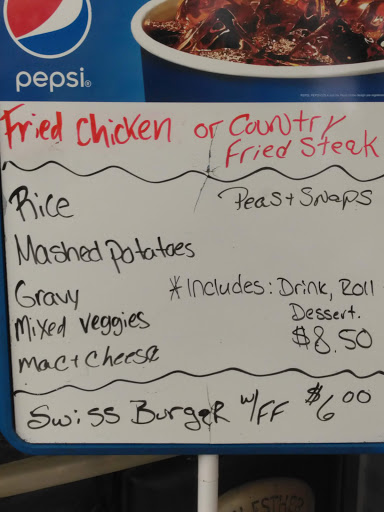 pepsi®
Fried Chicken or Country
Fried Steak
Rice
Peas + Snaps
Mashed Potatoes
Gravy
*Includes: Drink, Roll
Dessert.
Mixed Veggies
$8.50
Mac + Cheese
Swiss Burger w/FF $6.00
ESTHER